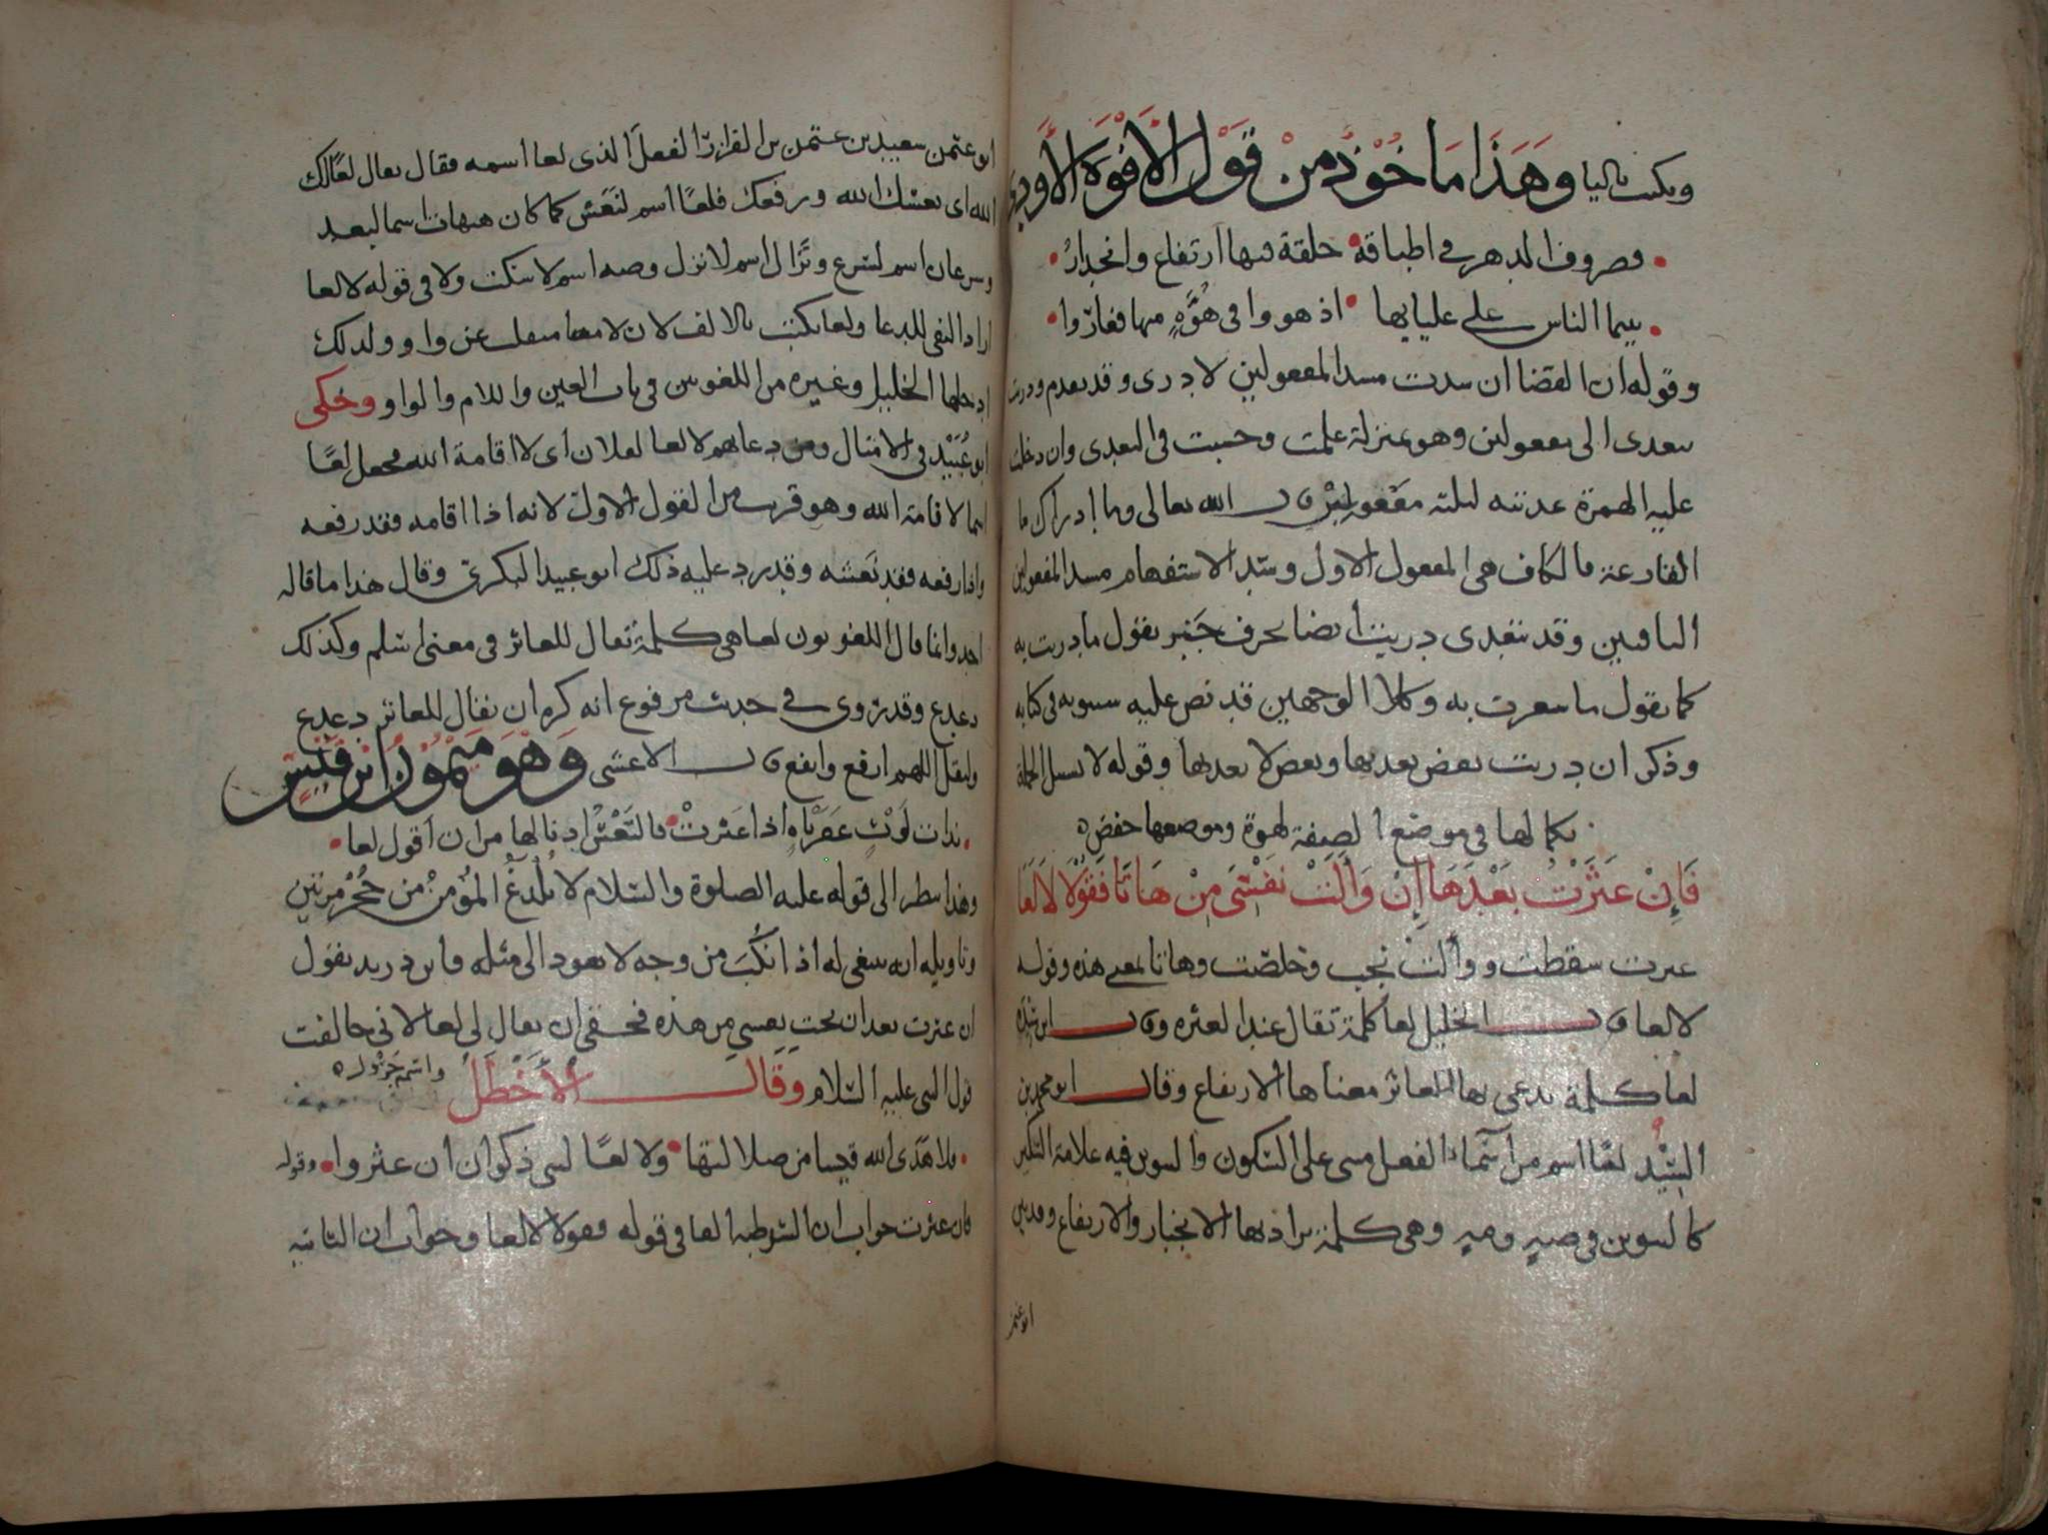 ويكتب بالياء وَهَذَا مَاخُوْذٌ مِنْ قَوْلِ الأَفْوَهِ الأَوْدِي
فصروف الدهر في اطباقه حلقة فيها ارتفاع وانحدارُ
بينما الناس على عليايها اذ هووا في هُوَّةٍ منها فغاروا
وقوله ان القضا ان سدت مسد المفعولين لادرى وقد تقدم ودريت
يتعدى الى مفعولين وهو بمنزلة علمت وحسبت في التعدى وان دخلت
عليه الهمزة عدته لثلثة مفعولِيْن قال الله تعالى وما ادراك ما
القارعة فالكاف هي المفعول الاول وسدّ الاستفهام مسد المفعولين
الباقيين وقد تتعدى دريت ايضا بحرف جَرّ تقول ما دريت به
كما تقول ما شعرت به وكلا الوجهين قد نص عليه سيبويه في كتابه
وذكر ان دريت بعض يعديها وبعض لا يعديها وقوله لا تستبل الجملة
بكمالها في موضع الصفة لهوة وموضعها خفض
فَإِنْ عَثَرْتُ بَعْدَهَا إِنْ وَأَلَتْ نَفْسِيَ مِنْ هَاتَا فَقُوْلَا لَا لَعَا
عثرت سقطت ووألت نجت وخلصت وهاتا بمعنى هذه وقوله
لا لعا قال الخليل لعا كلمة تقال عند العثرة وقال ابن سيده
لعا كلمة يدعى بها للعاثر معناها الارتفاع وقال ابو محمد بن
السِّيْد لعًا اسم من أسماء الفعل مبنى على السكون والتنوين فيه علامة التنكير
كالتنوين في صهٍ ومهٍ وهي كلمة يراد بها الانجبار والارتفاع وقد بين
ابو عثمن
ابو عثمن سعيد بن عثمن بن القزاز الفعل الذي لعا اسمه فقال يقال لعًا لك
الله اى نعشك الله ورفعك فلعًا اسم لنَعَش كما كان هيهات اسما لبعد
وسرعان اسم لسَرع ونَزَال اسم لانزل وصه اسم لاسكت ولا في قوله لا لعا
اراد النفي للدعا ولعا يكتب بالالف لان لامها منقلبة عن واو ولذلك
ادخلها الخليل وغيره من اللغويين في باب العين واللام والواو وحكى
ابو عُبَيْد في الامثال ومن دعايهم لا لعا لفلان اى لا اقامة الله فجعل لعًا
اسما لاقامة الله وهو قريب من القول الاول لانه اذا اقامه فقد رفعه
واذا رفعه فقد نَعَشه وقد رد عليه ذلك ابو عبيد البكري وقال هذا ما قاله
احد وانما قال اللغويون لعا هي كلمة تقال للعاثر في معنى اسلم وكذلك
دعدع وقد روى في حديث مرفوع انه كره ان يقال للعاثر دعدع
وليقل اللهم ارفع وانفع قال الاعشى وَهْوَ مَيْمُوْنُ ابْنُ قَيْسٍ
بذات لَوْثٍ عَفَرْنَاةٍ اذا عَثَرَتْ فالتَعْسُ ادنا لها من ان اقول لعا
وهذا ينظر الى قوله عليه الصلوة والسلام لا يُلْدَغُ المؤمنُ من جُحْر مرتين
وتاويله انه ينبغي له اذا نُكِبَ من وجه لا يعود الى مثله فابن دريد يقول
ان عثرت بعد ان نجت نفسي من هذه فحقى ان يقال لي لا لعا لاني خالفت
قول النبي عليه السلام وَقَالَ الْأَخْطَلُ واسمه
فلا هَدَى الله قيسا من ضلالتها ولا لعًا لبني ذكوان ان عثروا وقوله
فان عثرت جواب ان الشرطية الفا في قوله فقولا لا لعا وجواب ان الثانيه